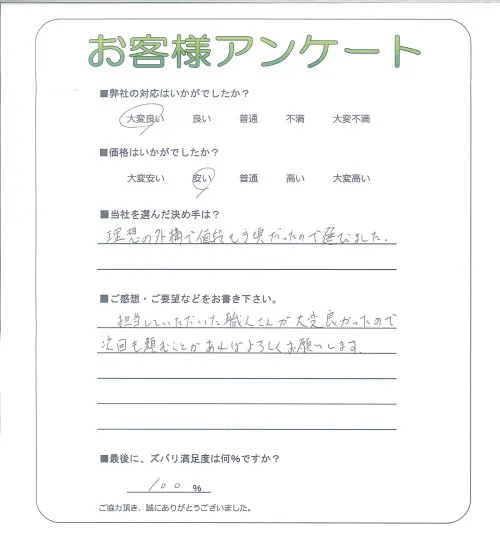 お客様アンケート
■弊社の対応はいかがでしたか？
大変良い 良い 普通 不満 大変不満
■価格はいかがでしたか？
大変安い 安い 普通 高い 大変高い
■当社を選んだ決め手は？
理想の外構で値段も手頃だったので選びました。
■ご感想・ご要望などをお書き下さい。
担当していただいた職人さんが大変良かったので
次回も頼むことがあればよろしくお願いします。
■最後に、ズバリ満足度は何%ですか？
100 %
ご協力頂き、誠にありがとうございました。